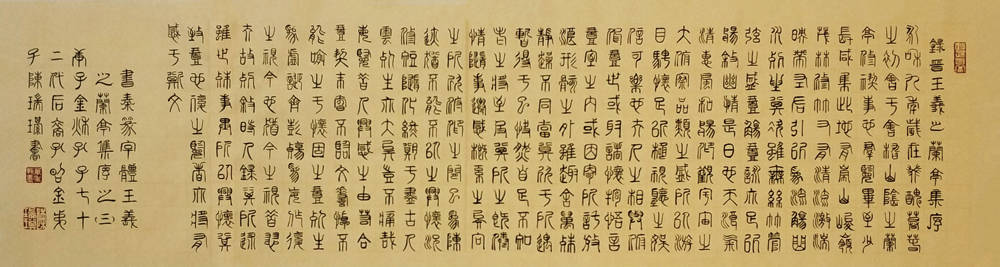 錄晉王羲之蘭亭集序
永和九年歲在癸丑暮春
之初會于會稽山陰之蘭
亭修禊事也羣賢畢至少
長咸集此地有崇山峻嶺
茂林修竹又有清流激湍
映帶左右引以爲流觴曲
水列坐其次雖無絲竹管
弦之盛壹觴壹詠亦足以
暢敘幽情是日也天朗氣
清惠風和暢仰觀宇宙之
大俯察品類之盛所以游
目騁懷足以極視聽之娛
信可樂也夫人之相與俯
仰壹世或取諸懷抱悟言
壹室之內或因寄所託放
浪形骸之外雖趣舍萬殊
靜躁不同當其欣于所遇
暫得于己快然自足不知
老之將至及其所之既倦
情隨事遷感慨係之矣向
之所欣俯仰之間已爲陳
跡猶不能不以之興懷況
修短隨化終期于盡古人
云死生亦大矣豈不痛哉
每覽昔人興感之由若合
壹契未嘗不臨文嗟悼不
能喻之于懷固知壹死生
爲虛誕齊彭殤爲妄作後
之視今亦猶今之視昔悲
夫故列敘時人錄其所述
雖世殊事異所以興懷其
致壹也後之覽者亦將有
感于斯文
書秦篆字體王羲
之蘭亭集序之三
金秋孔子七十
二代后裔孔金弟
子陳瑞瑾書